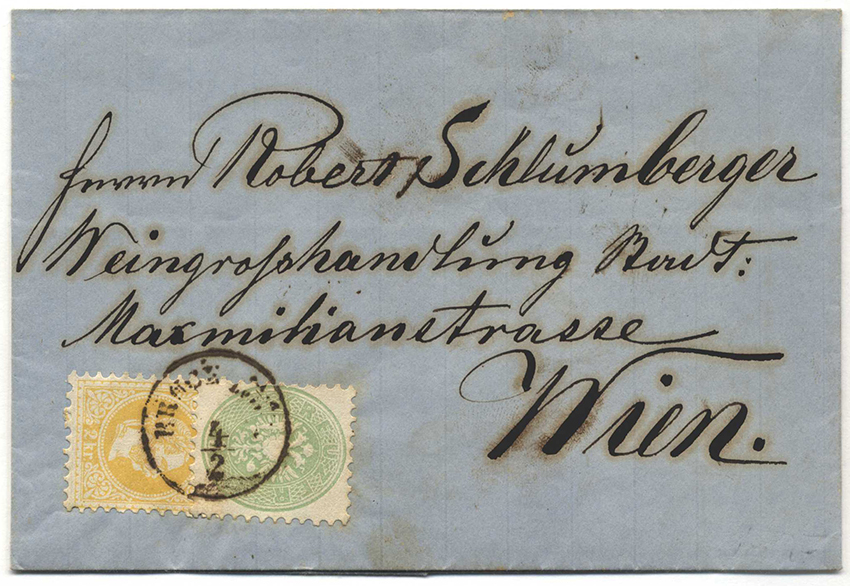 Herrn Robert Schlumberger
Weingroßhandlung Stadt:
Maxmilianstrasse
Wien.
2 kr.
BRUCK
4
2